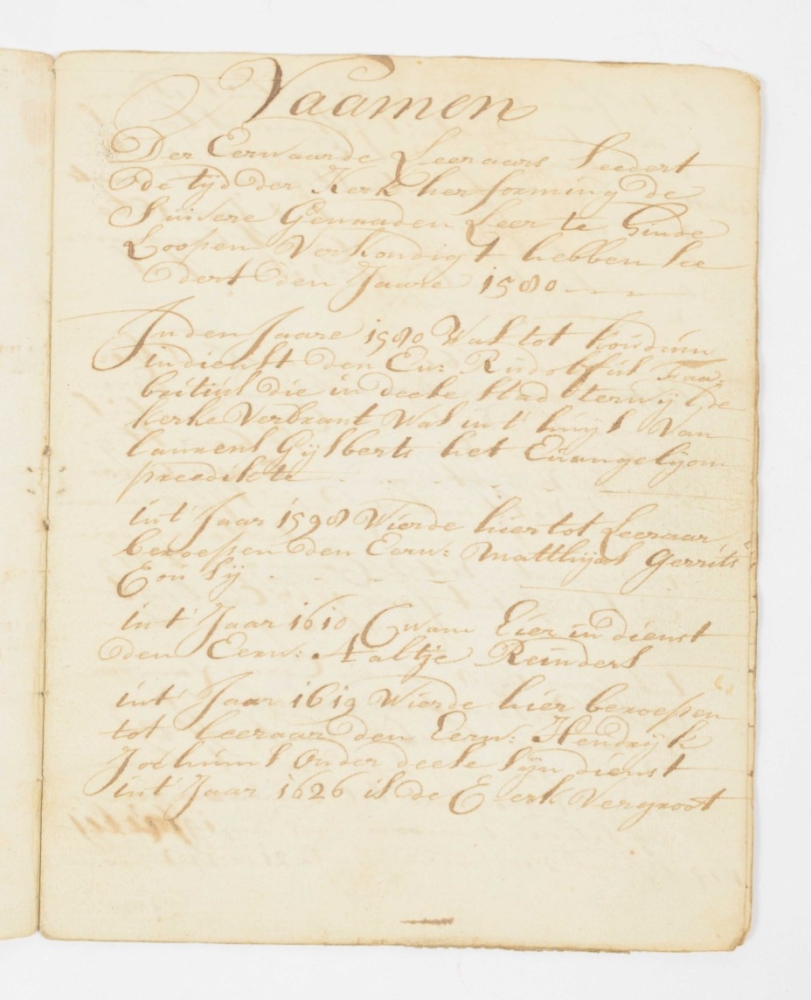 Naamen
Der Eerwaarde Leeraars Seedert
de tijd der Kerk herforming de
Suivere Genaaden Leer te Hinde
Loopen Verkondigt hebben See
dert den Jaare 1580
In den Jaare 1580 Was tot Koudum
in dienst den Eu: Rudolfús Faa
britiús die in deese stad terwijl de
kerke Verbrant Was in't huijs Van
Laurens Gijsberts het Euangelijom
preedikte
int Jaar 1598 Wierde hier tot Leeraar
beroepen den Eerw: Matthijas Gerrits
int Jaar 1610 Cwam hier in dienst
den Eerw: Aaltje Reinders
int Jaar 1619 Wierde hier beroepen
tot Leeraar den Eerw: Hendrijk
Jochúms onder deese sijn dienst
int Jaar 1626 is de Cerk Vergroot